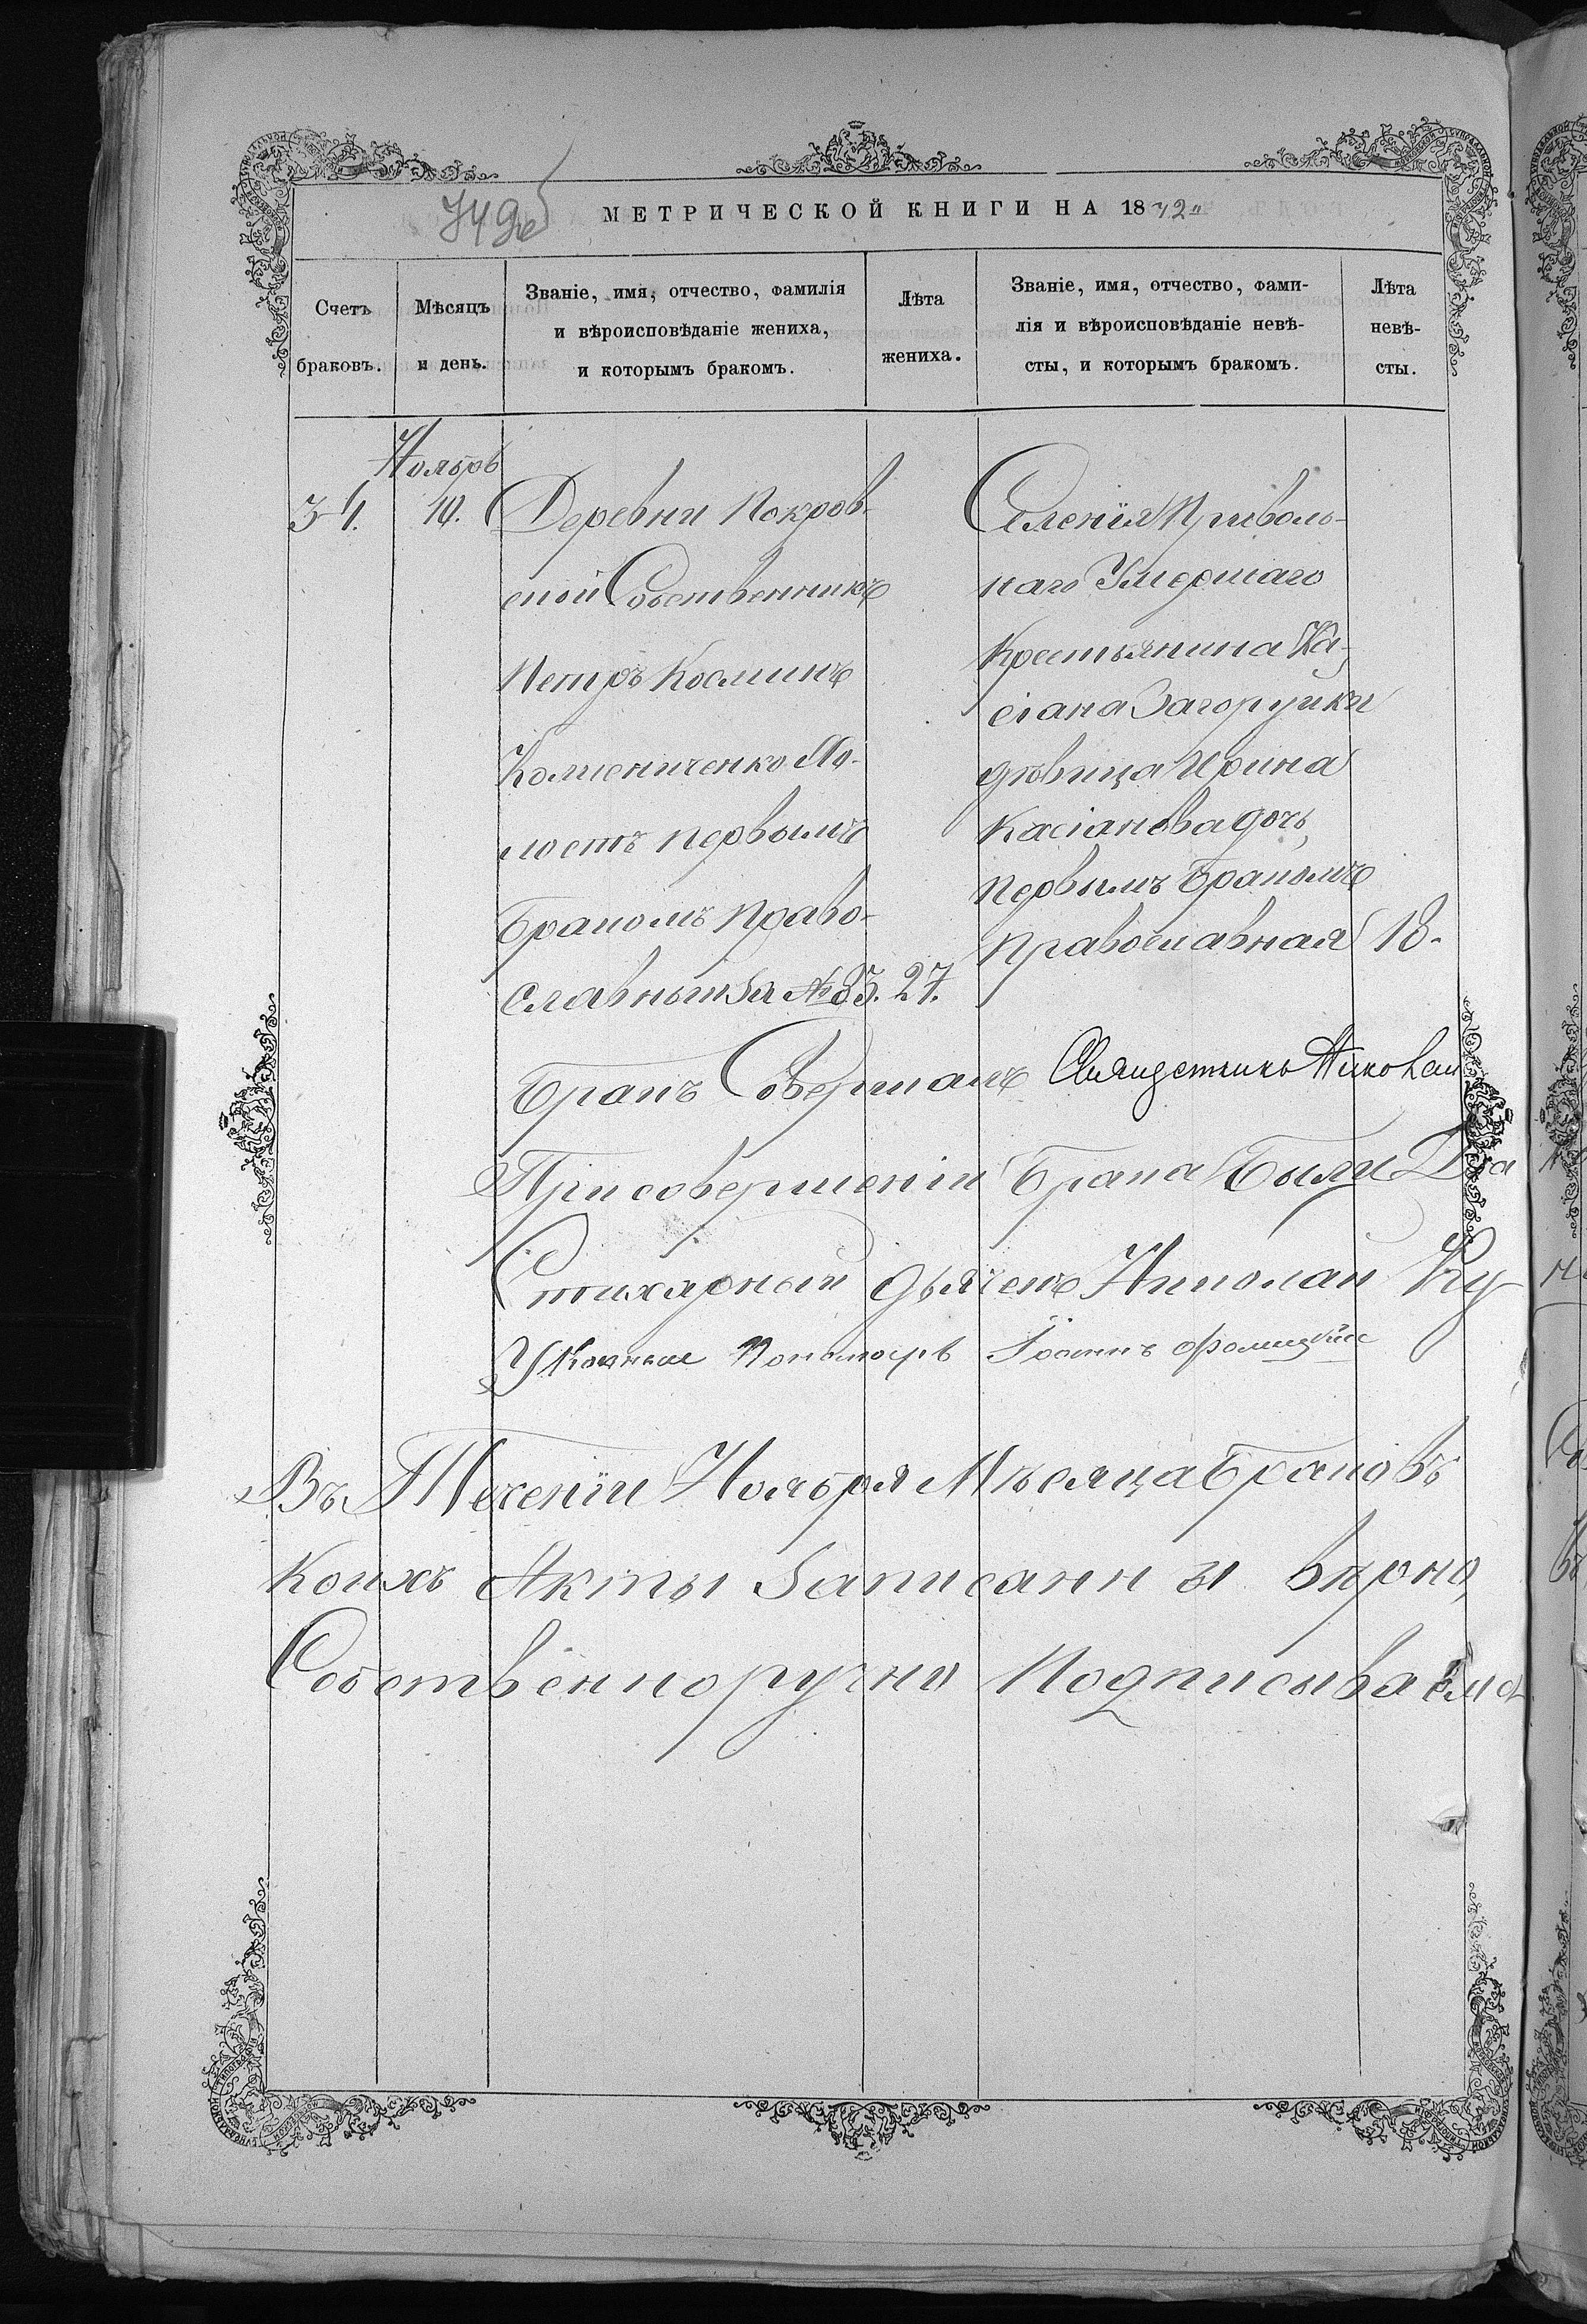 МЕТРИЧЕСКОЙ КНИГИ НА 1872
Счетъ браковъ.
Мѣсяцъ и день.
Званіе, имя, отчество, фамилія
и вѣроисповѣданіе жениха,
и которымъ бракомъ.
Лѣта
жениха.
Званіе, имя, отчество, фами-
лія и вѣроисповѣданіе невѣ-
сты, и которымъ бракомъ.
Лѣта
невѣ-
сты.
Ноябрь
34.
10.
Деревни Покров-
ской Собственникъ
Петръ Косминъ
первымъ
бракомъ Право-
славный За № 83.
27.
Селенія Приволь-
наго Умершаго
Крестьянина Ка-
сіана Загоруйки
дѣвица Ирина
Касіанова дочь,
Первымъ бракомъ
Православная
18.
Бракъ Совершалъ Священникъ Николай
При совершеніи Брака Были Два
Стихарный дьячекъ Николай Ку
Указный Пономарь Іоаннъ
Въ Теченіи Ноября Мѣсяца браковъ
Коихъ Акты Записанны вѣрно,
Собственноручно Подписываемся